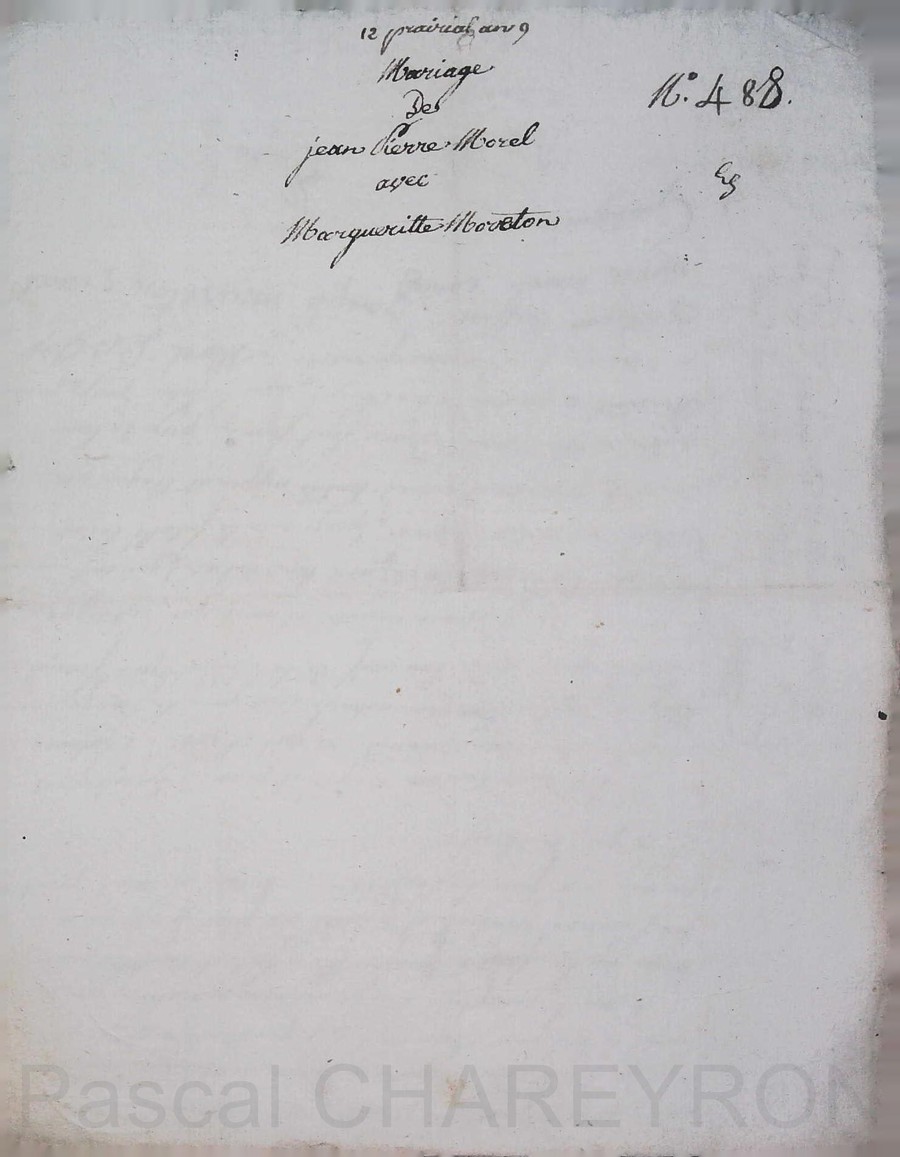 12 prairial an 9
Mariage
De
jean Pierre Morel
avec
Margueritte Moreton
N.° 488.
Pascal CHAREYRON